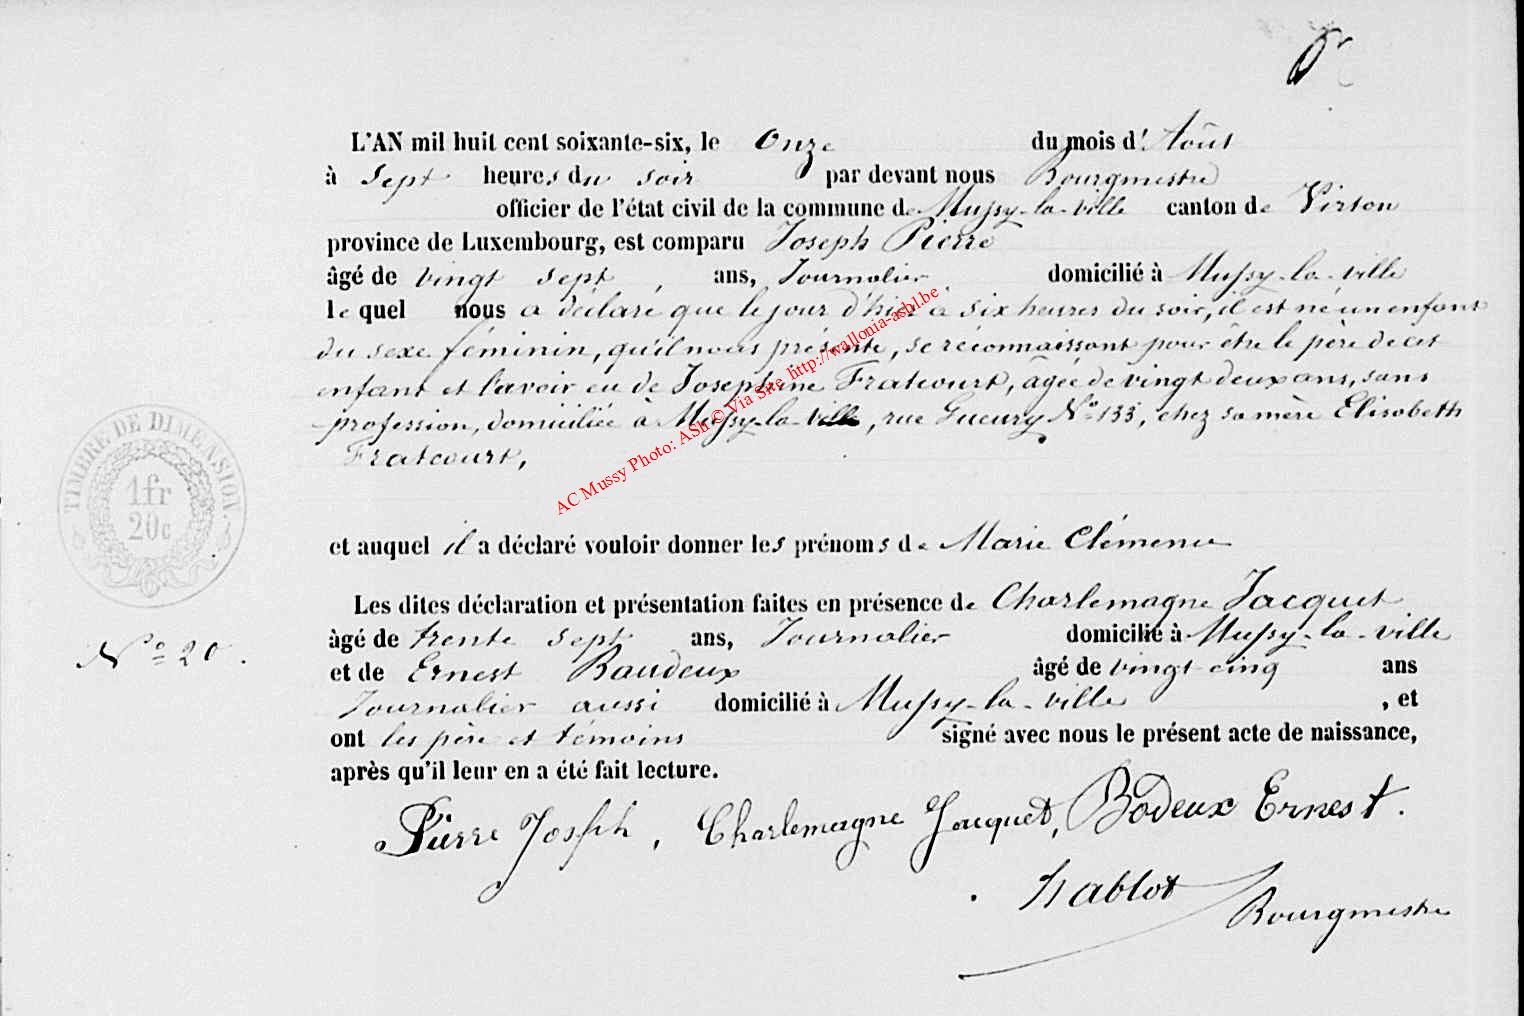 L'AN mil huit cent soixante-six, le Onze du mois d'Août
à sept heures du soir par devant nous Bourgmestre
officier de l'état civil de la commune de Mussy-la-ville canton de Virton
province de Luxembourg, est comparu Joseph Pierre
âgé de vingt sept, ans, Journalier domicilié à Mussy-la-ville
le quel nous a déclaré que le jour d'hier à six heures du soir, il est né un enfant
du sexe féminin, qu'il nous présente, se réconnaissant pour être le père de cet
enfant et l'avoir eu de Josephine Fratcourt, âgée de vingt deux ans, sans
profession, domiciliée à Mussy-la-Ville, rue Gueury No 133, chez sa mère Elisabeth
Fratcourt,
AC Mussy Photo: ASh © Via Site http://wallonia-asbl.be
TIMBRE DE DIMENSION.
1fr
20c
et auquel il a déclaré vouloir donner les prénoms de Marie Clémence
Les dites déclaration et présentation faites en présence de Charlemagne Jacquet
âgé de trente sept ans, Journalier domicilié à Mussy-la-ville
No 20.
et de Ernest Baudeux âgé de vingt-cinq ans
Journalier aussi domicilié à Mussy-la-ville, et
ont les père et témoins signé avec nous le présent acte de naissance,
après qu'il leur en a été fait lecture.
Pierre Joseph, Charlemagne Jacquet, Bodeux Ernest.
Hablot
Bourgmestre